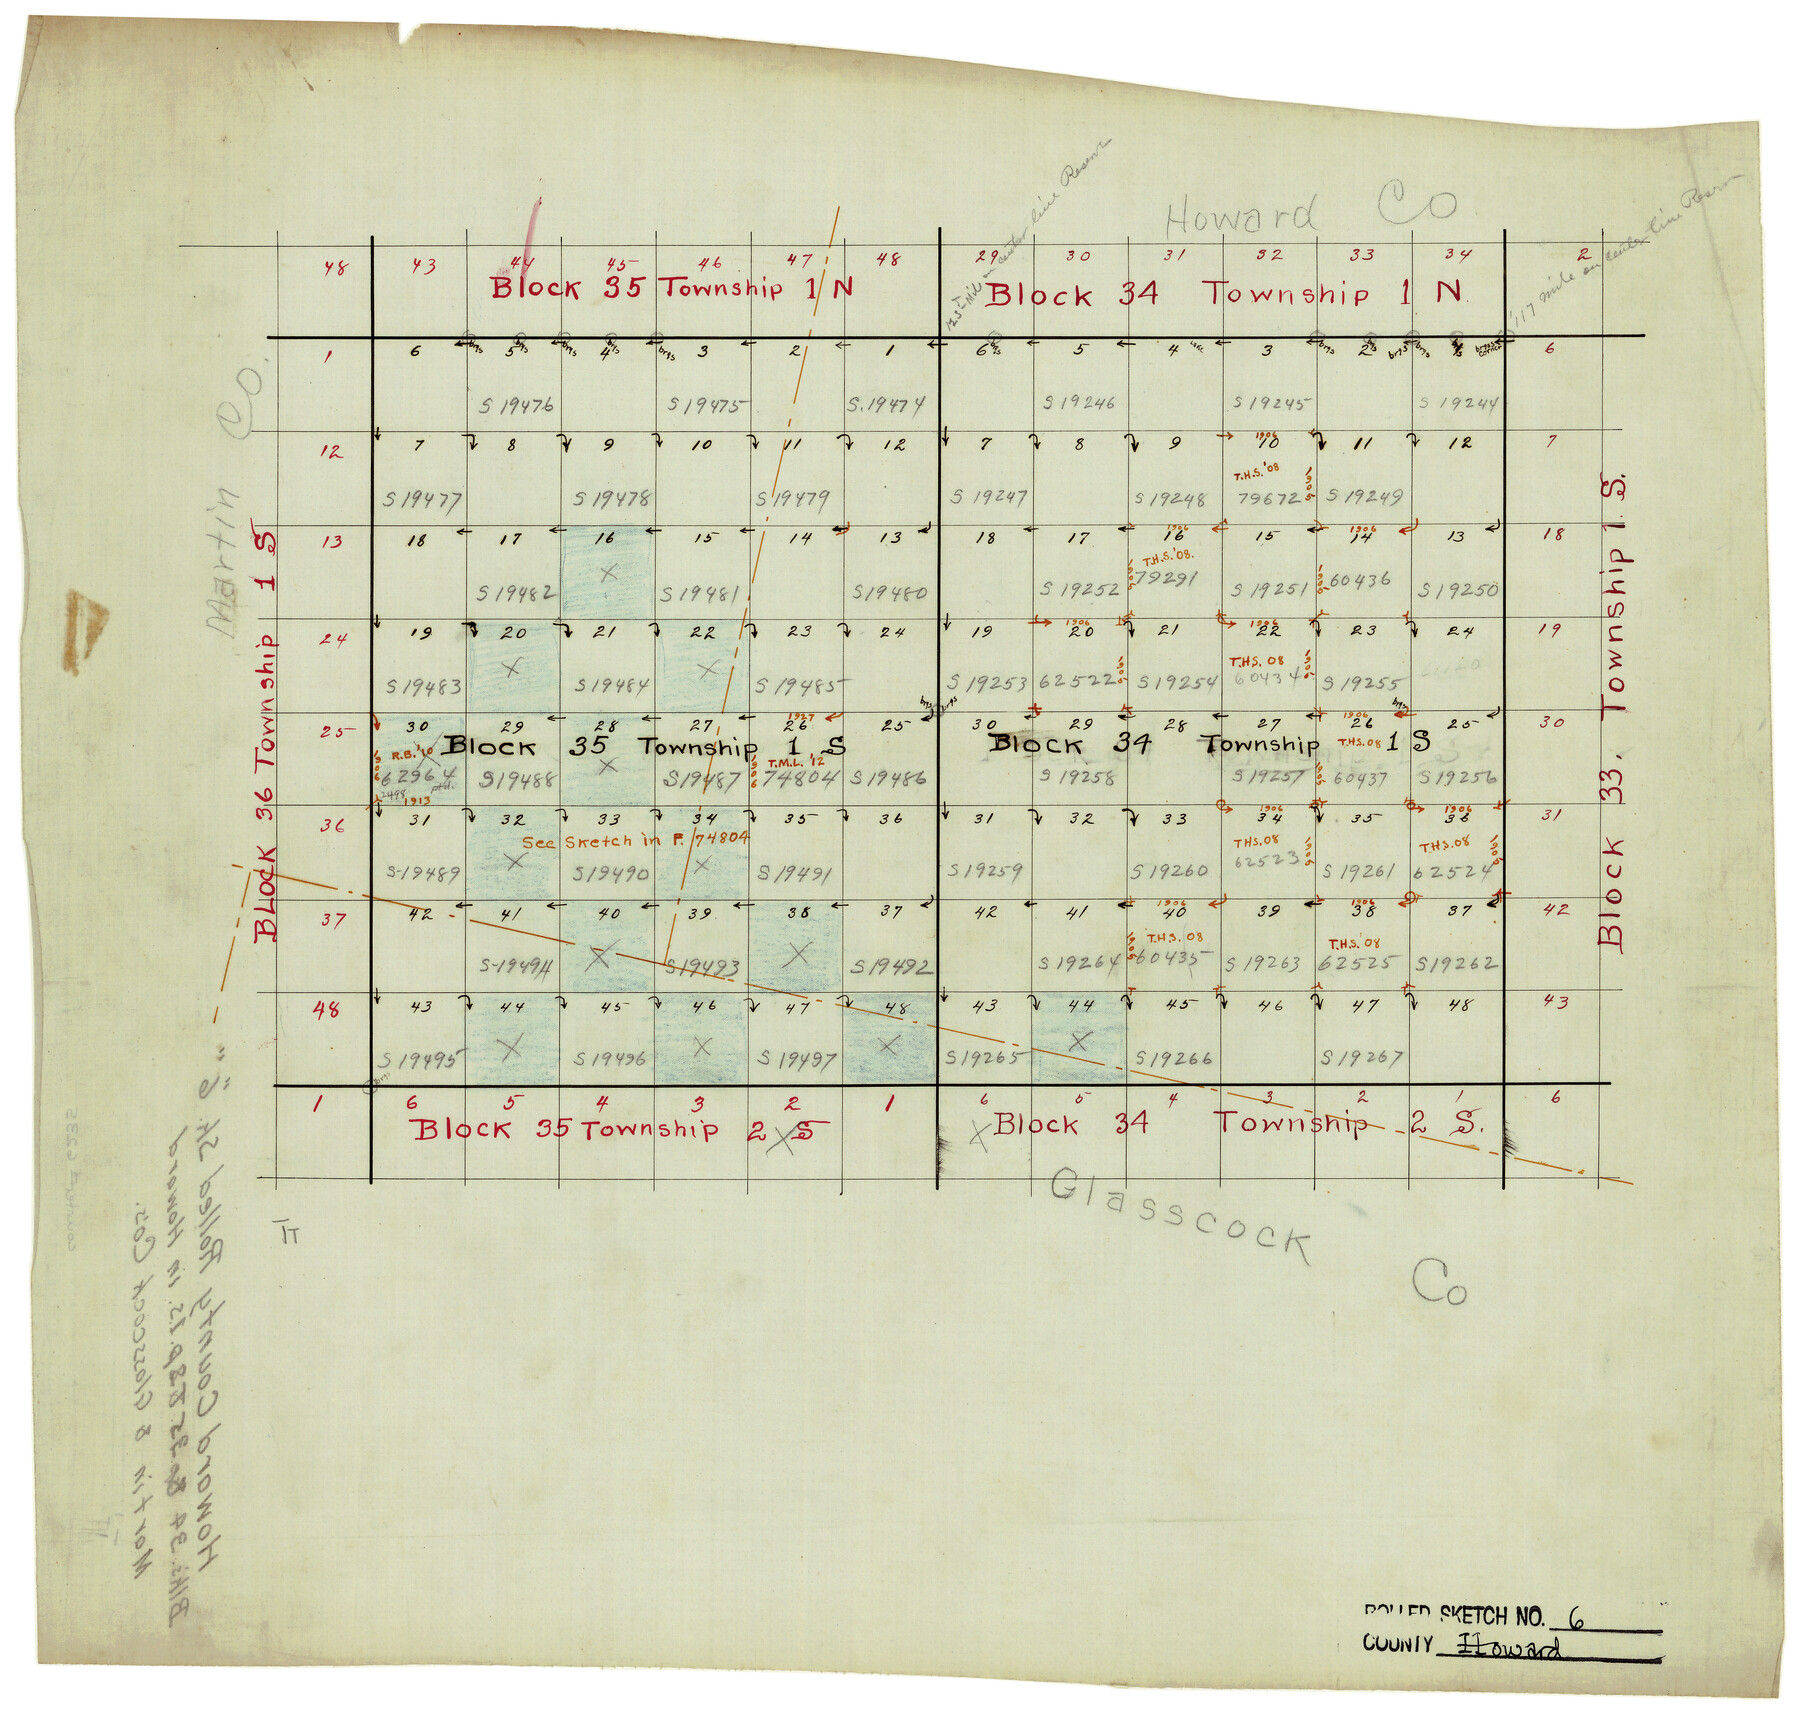 Howard Co
125th Mile on center line Reserve
117 mile on center line Reserv
48 43 44 45 46 47 48 29 30 31 32 33 34 2
Block 35 Township 1 N Block 34 Township 1 N.
1 6 5 4 3 2 1 6 5 4 3 2 1 6
brgs brgs brgs brgs brgs brgs brgs corner
S 19476 S 19475 S. 19474 S 19246 S 19245 S 19244
Martin Co.
12 7 8 9 10 11 12 7 8 9 10 11 12 7
1906
T.H.S. '08
S 19477 S 19478 S 19479 S 19247 S 19248 79672 1905 S 19249
13 18 17 16 15 14 13 18 17 16 15 14 13 18
1906 1906
T.H.S. '08.
X
S 19482 S 19481 S 19480 S 19252 1905 79291 S 19251 1905 60436 S 19250
24 19 20 21 22 23 24 19 20 21 22 23 24 19
1906 1906
X X T.H.S. 08
S 19483 S 19484 S 19485 S 19253 62522 1905 S 19254 60434 1905 S 19255
brgs brgs brgs
25 30 29 28 27 26 25 30 29 28 27 26 25 30
1927 1906
Block 35 Township 1 S Block 34 Township 1 S
R.B. '10 X T.M.L. '12 T.H.S. 08
1906 62964 S 19488 S 19487 1906 74804 S 19486 S 19258 S 19257 1905 60437 S 19256
2498 ptd.
1913
36 31 32 33 34 35 36 31 32 33 34 35 36 31
1906 1906
See Sketch in F. 74804
X X T.H.S. 08 T.H.S. 08
S-19489 S 19490 S 19491 S 19259 S 19260 62523 1905 S 19261 62524 1905
37 42 41 40 39 38 37 42 41 40 39 38 37 42
1906 1906
X X T.H.S. 08 T.H.S. '08
S-19494 S 19493 S 19492 S 19264 1905 60435 S 19263 62525 S 19262
48 43 44 45 46 47 48 43 44 45 46 47 48 43
X X X X
S 19495 S 19496 S 19497 S 19265 S 19266 S 19267
brgs
1 6 5 4 3 2 1 6 5 4 3 2 1 6
Block 35 Township 2 S Block 34 Township 2 S.
X X
Block 36 Township 1 S
Block 33, Township 1 S.
Glasscock Co
II
Howard County Rolled Sk. "6"
Blks. 34 & 35 T&P. 1S. in Howard
Martin & Glasscock Cos.
III
ROLLED SKETCH NO. 6
COUNTY Howard